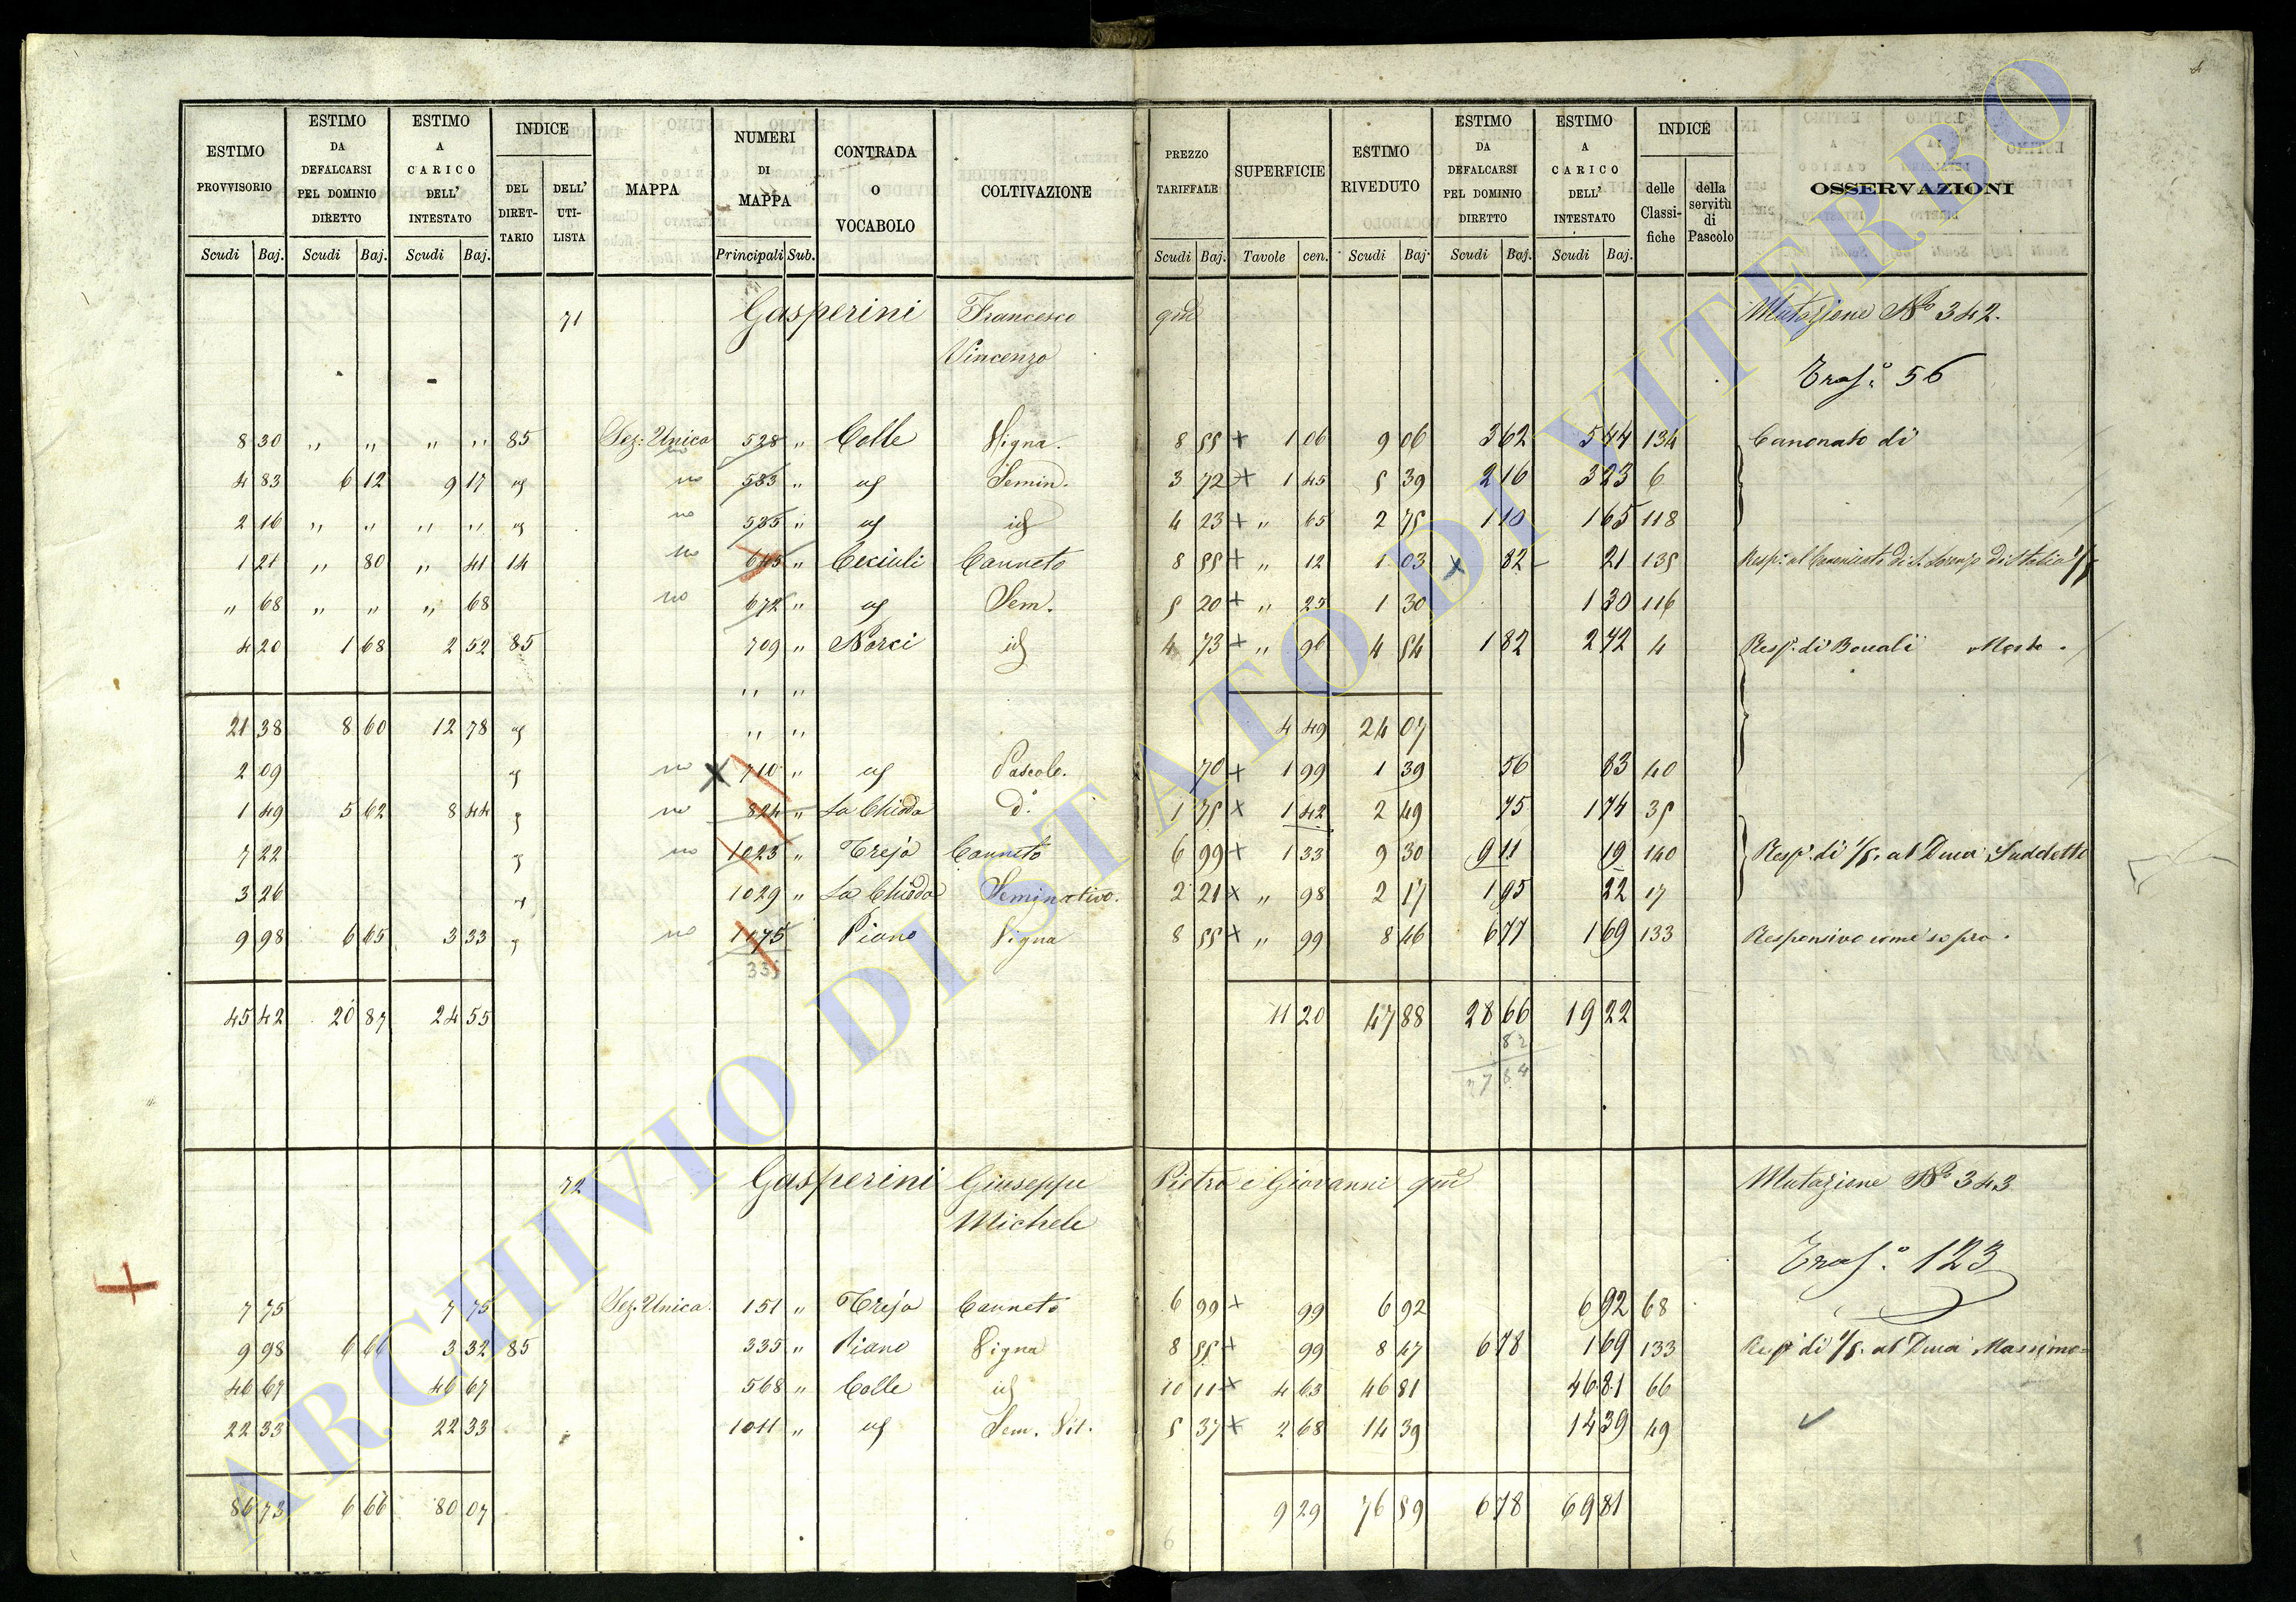 ESTIMO PROVVISORIO | ESTIMO DA DEFALCARSI PEL DOMINIO DIRETTO | ESTIMO A CARICO DELL' INTESTATO | INDICE | MAPPA | NUMERI DI MAPPA | CONTRADA O VOCABOLO | COLTIVAZIONE | PREZZO TARIFFALE | SUPERFICIE | ESTIMO RIVEDUTO | ESTIMO DA DEFALCARSI PEL DOMINIO DIRETTO | ESTIMO A CARICO DELL' INTESTATO | INDICE | OSSERVAZIONI
DEL DIRETTARIO | DELL' UTILISTA | delle Classifiche | della servitù di Pascolo
Scudi Baj. | Scudi Baj. | Scudi Baj. | Principali Sub. | Scudi Baj. | Tavole cen. | Scudi Baj. | Scudi Baj. | Scudi Baj.
71 Gasperini Francesco qm Mutazione No 342.
Vincenzo
Tras.o 56
8 30 " " " " 85 Sez: Unica 528 " Colle Vigna. 8 55 + 1 06 9 06 3 62 5 44 134 Canonato di
4 83 6 12 9 17 no 533 " Semin. 3 72 + 1 45 5 39 2 16 3 23 6
2 16 " " " " no 535 " id 4 23 + " 65 2 75 1 10 1 65 118
1 21 " 80 " 41 14 no 645 " Ceciuli Canneto 8 55 + " 12 1 03 x 82 21 135
" 68 " " " 68 no 672 " Sem. 5 20 + " 25 1 30 1 30 116
4 20 1 68 2 52 85 709 " Norci id 4 73 + " 96 4 54 1 82 2 72 4
" "
21 38 8 60 12 78 " " 4 49 24 07
2 09 no x 710 " Pascolo. 70 + 1 99 1 39 56 83 40
1 49 5 62 8 44 no 824 " La Chioda d.o 1 75 x 1 42 2 49 75 1 74 35
7 22 no 1023 " Treja Canneto 6 99 + 1 33 9 30 9 11 19 140 Resp. di 1/5. al Duca Suddetto
3 26 1029 " La Chioda Seminativo. 2 21 x " 98 2 17 1 95 22 17
9 98 6 65 3 33 no 1075 Piano Vigna 8 55 + " 99 8 46 6 77 1 69 133 Responsivo come sopra.
335
45 42 20 87 24 55 11 20 47 88 28 66 19 22
82
72 Gasperini Giuseppe Pietro e Giovanni qm Mutazione No 343
Michele
Tras.o 123
7 75 7 75 Sez: Unica. 151 " Treja Canneto 6 99 + 99 6 92 6 92 68
9 98 6 66 3 32 85 335 " Piano Vigna 8 55 + 99 8 47 6 78 1 69 133 Resp di 1/5. al Duca Massimo
46 67 46 67 568 " Colle id 10 11 + 4 63 46 81 46 81 66
22 33 22 33 1011 " Sem. Vit. 5 37 + 2 68 14 39 14 39 49
86 73 6 66 80 07 9 29 76 59 6 78 69 81
ARCHIVIO DI STATO DI VITERBO